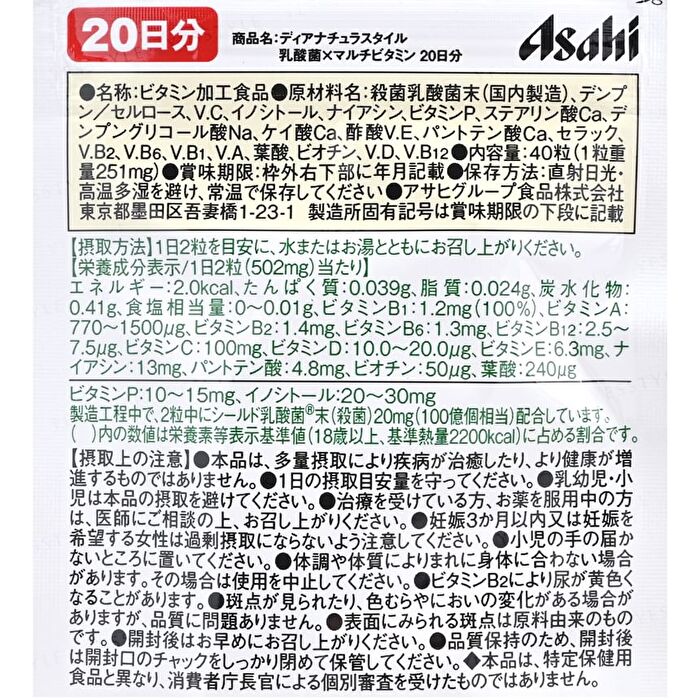 20日分
商品名:ディアナチュラスタイル
乳酸菌×マルチビタミン 20日分
Asahi
●名称:ビタミン加工食品●原材料名:殺菌乳酸菌末(国内製造)、デンプ
ン/セルロース、V.C、イノシトール、ナイアシン、ビタミンP、ステアリン酸Ca、デ
ンプングリコール酸Na、ケイ酸Ca、酢酸V.E、パントテン酸Ca、セラック、
V.B2、V.B6、V.B1、V.A、葉酸、ビオチン、V.D、V.B12●内容量:40粒(1粒重
量251mg)●賞味期限:枠外右下部に年月記載●保存方法:直射日光・
高温多湿を避け、常温で保存してください●アサヒグループ食品株式会社
東京都墨田区吾妻橋1-23-1 製造所固有記号は賞味期限の下段に記載
【摂取方法】1日2粒を目安に、水またはお湯とともにお召し上がりください。
【栄養成分表示/1日2粒(502mg)当たり】
エネルギー:2.0kcal、たんぱく質:0.039g、脂質:0.024g、炭水化物:
0.41g、食塩相当量:0〜0.01g、ビタミンB1:1.2mg(100%)、ビタミンA:
770〜1500μg、ビタミンB2:1.4mg、ビタミンB6:1.3mg、ビタミンB12:2.5〜
7.5μg、ビタミンC:100mg、ビタミンD:10.0〜20.0μg、ビタミンE:6.3mg、ナ
イアシン:13mg、パントテン酸:4.8mg、ビオチン:50μg、葉酸:240μg
ビタミンP:10〜15mg、イノシトール:20〜30mg
製造工程中で、2粒中にシールド乳酸菌®末(殺菌)20mg(100億個相当)配合しています。
( )内の数値は栄養素等表示基準値(18歳以上、基準熱量2200kcal)に占める割合です。
【摂取上の注意】●本品は、多量摂取により疾病が治癒したり、より健康が増
進するものではありません。●1日の摂取目安量を守ってください。●乳幼児・小
児は本品の摂取を避けてください。●治療を受けている方、お薬を服用中の方
は、医師にご相談の上、お召し上がりください。●妊娠3か月以内又は妊娠を
希望する女性は過剰摂取にならないよう注意してください。●小児の手の届か
ないところに置いてください。●体調や体質によりまれに身体に合わない場合
があります。その場合は使用を中止してください。●ビタミンB2により尿が黄色く
なることがあります。●斑点が見られたり、色むらやにおいの変化がある場合が
ありますが、品質に問題ありません。●表面にみられる斑点は原料由来のもの
です。●開封後はお早めにお召し上がりください。●品質保持のため、開封後
は開封口のチャックをしっかり閉めて保管してください。◆本品は、特定保健用
食品と異なり、消費者庁長官による個別審査を受けたものではありません。